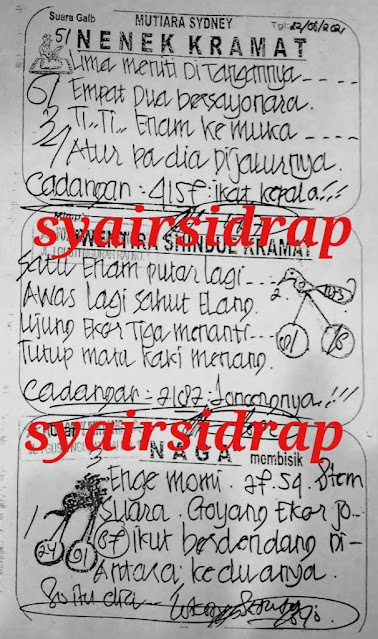 Suara Galb MUTIARA SYDNEY Tgl: 22/05/2021
51 NENEK KRAMAT
Lima menti Di Tangannya ----
6/ Empat Dua bersayonara.
3 Ti.. Ti.. Enam ke muka ----
2/ Atur pa dia Dijalurnya.
Cadangan: 415f: ikat kepala!!!
syairsidrap
KRAMAT
Satu Enam putar lagi ----
Awas lagi sahut Elang. 2.
Ujung Ekor Tiga menanti --
Tutup mata kaki menang.
Cadangan: 2187:
syairsidrap
NAGA membisik
Enge momi. 7f. 59. Stem
Suara. Goyang Ekor jo--
8f ikut berdendang Di-
Antara keduanya.
24 61
So itu dia---